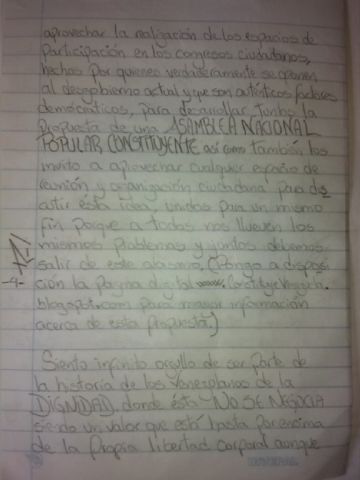 aprovechar la realización de los espacios de
Participación en los congresos ciudadanos,
hechos por quienes verdaderamente se oponen
al desgobierno actual y que son auténticos factores
democráticos, para desarrollar juntos la
Propuesta de una ASAMBLEA NACIONAL
POPULAR CONSTITUYENTE así como también los
invito a aprovechar cualquier espacio de
reunión y organización ciudadana para dis
cutir ésta idea, unidos para un mismo
fin porque a todos nos llueven los
mismos problemas y juntos debemos
salir de este abismo. (Pongo a disposi
-4- ción la Pagina digital
blogspot.com para mayor información
acerca de esta propuesta.)
Siento infinito orgullo de ser parte de
la historia de los Venezolanos de la
DIGNIDAD, donde ésta NO SE NEGOCIA
siendo un valor que está hasta por encima
de la Propia libertad corporal aunque